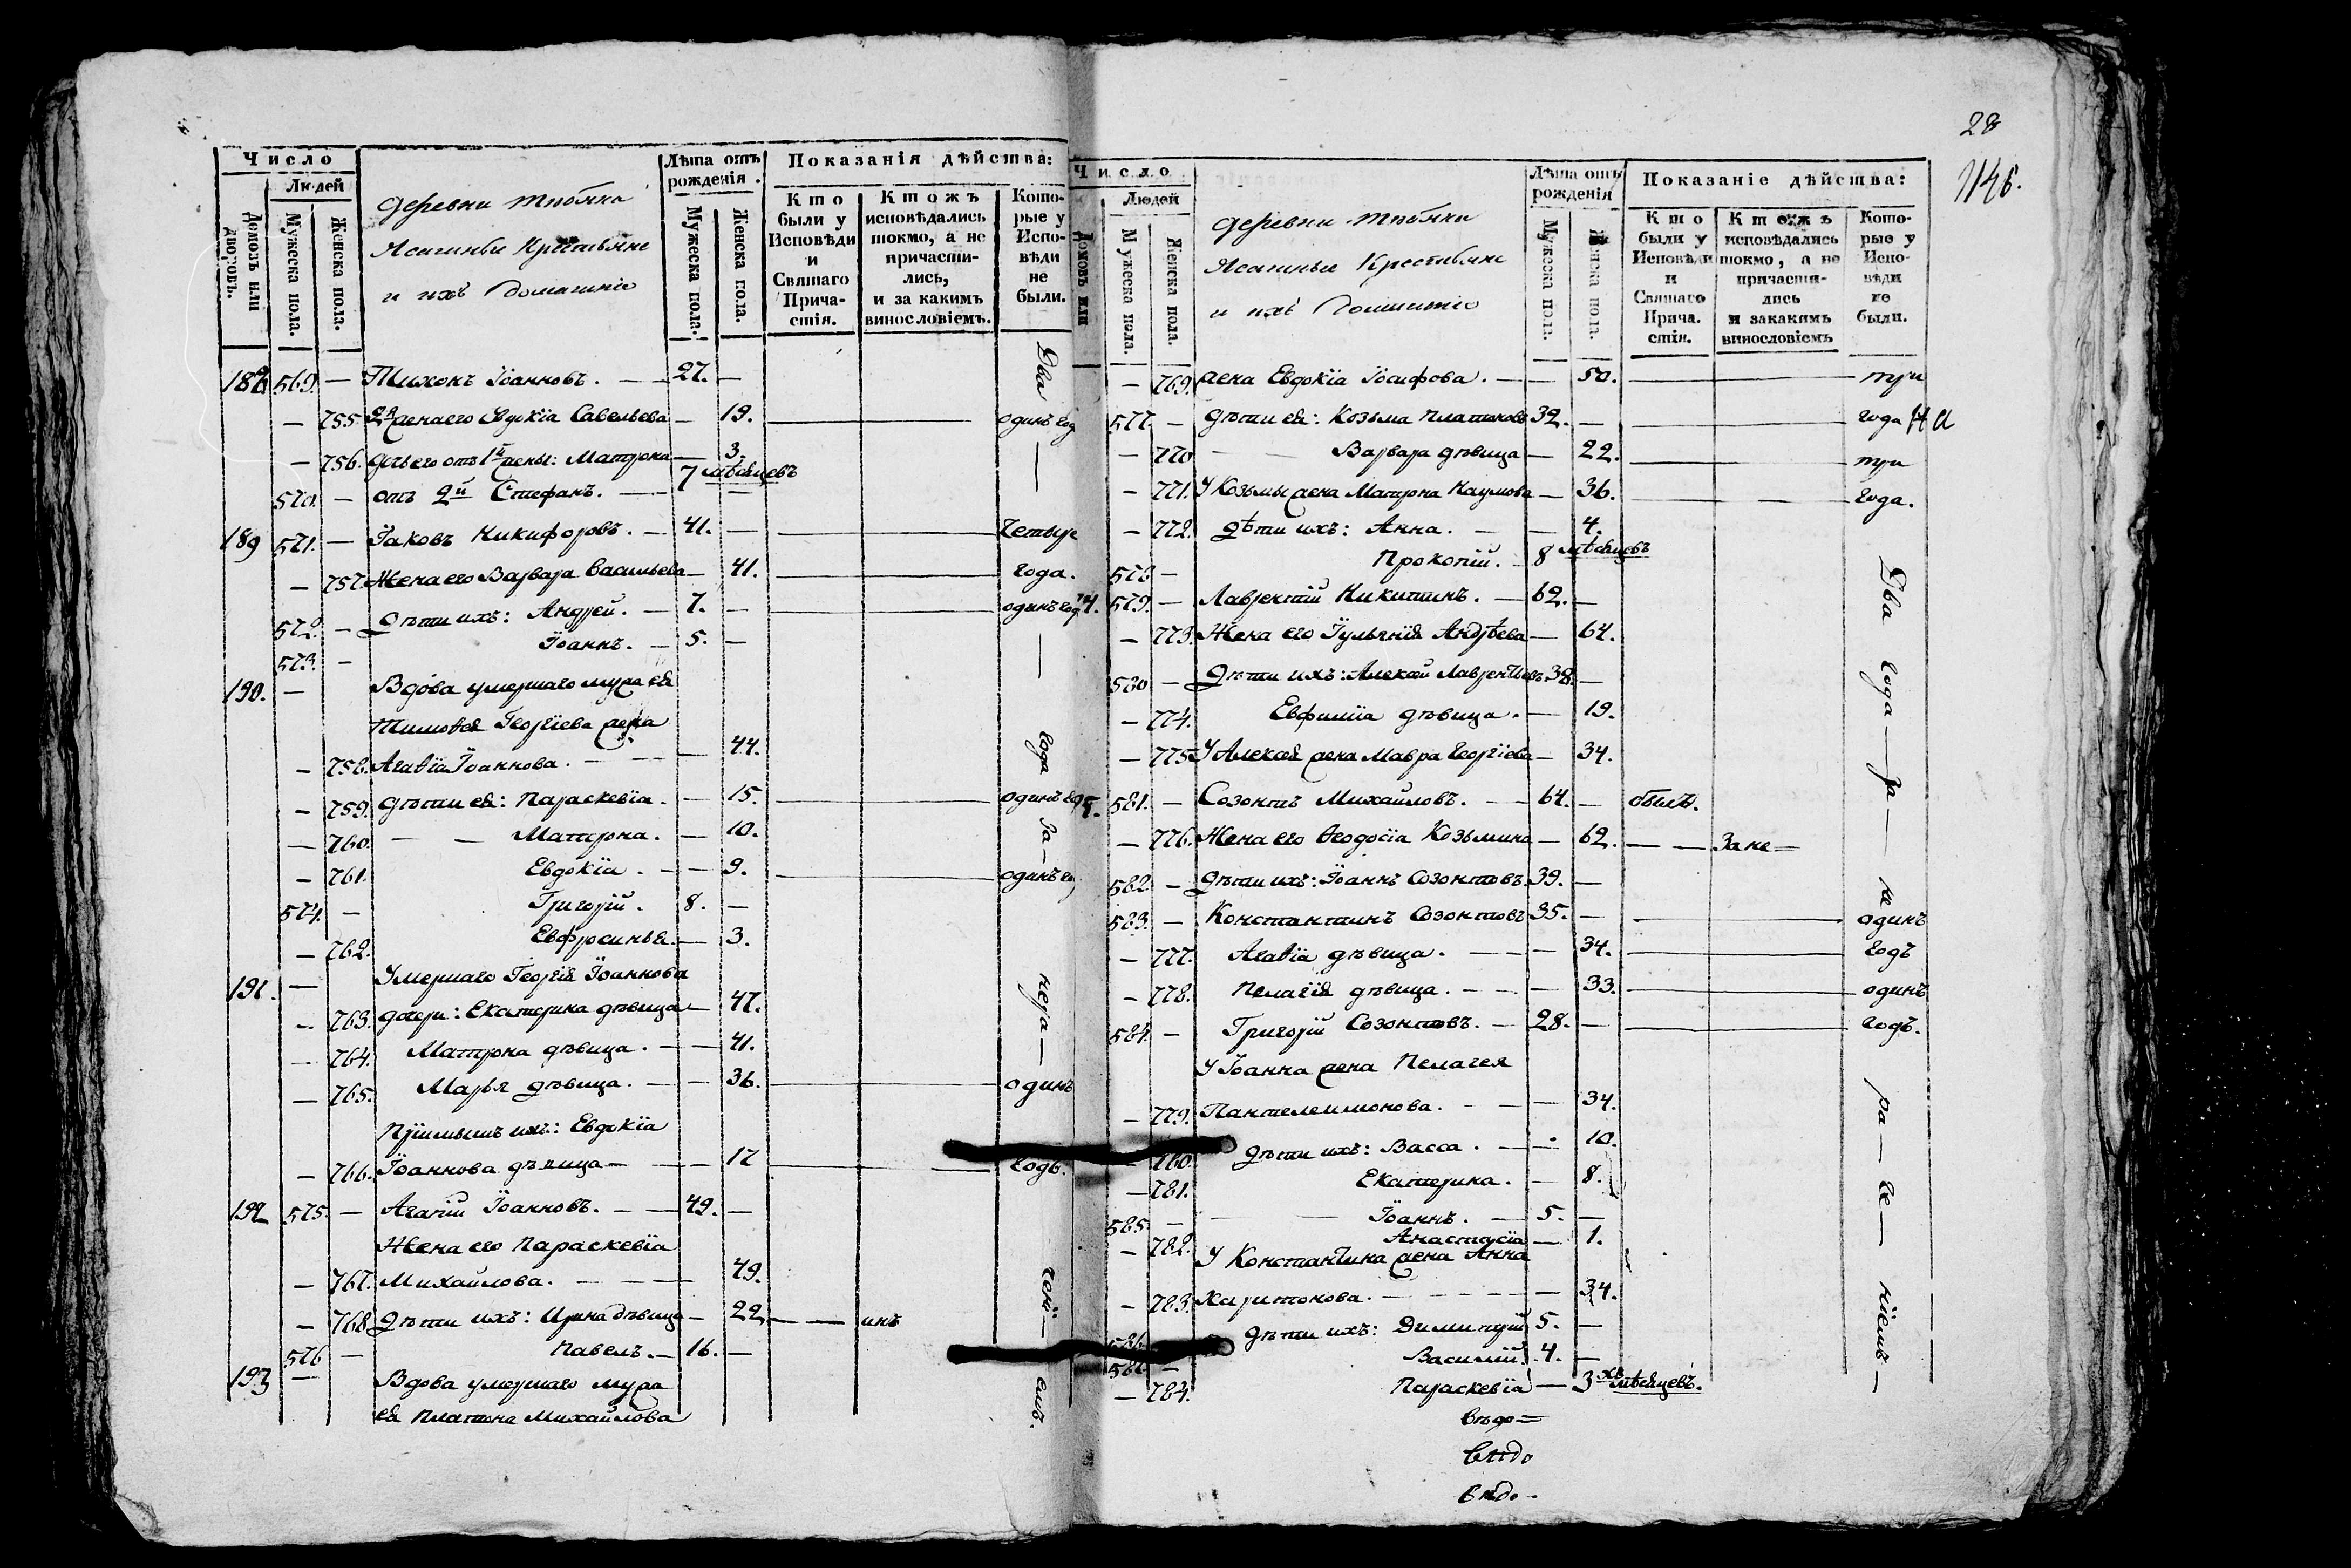 28
1146.
Число
Людей
Домовъ или дворовъ.
Мужеска пола.
Женска пола.
деревни
Ясашные Крестьяне
и ихъ домашніе
Лѣта отъ рожденія.
Мужеска пола.
Женска пола.
Показанія дѣйства:
Кто были у Исповѣди и Святаго Причастія.
Ктожъ исповѣдались токмо, а не причастились, и за какимъ винословіемъ.
Которые у Исповѣди не были.
188 569. — Тихонъ Іоанновъ. — 27. —
— 755. 2я жена его Евдокіа Савельева — 19. — одинъ год
— 756. дочь его отъ 1й жены: Матрона — 3.
570. — отъ 2й Стефанъ. — 7 мѣсяцевъ —
189 571. — Іаковъ Никифоровъ. — 41. — четыре
— 757. Жена его Варвара Васильева — 41. — года.
572. — Дѣти ихъ: Андрей. — 7. — одинъ год
573. — Іоаннъ. — 5. —
190. — Вдова умершаго мужа ея
Тимоѳея Георгіева жена
— 758. Агаѳіа Іоаннова. — 44.
— 759. дѣти ея: Параскевіа. — 15. — одинъ год
— 760. — — Матрона. — 10.
— 761. Евдокіа. — 9. — одинъ год
574. — Григорій. 8. —
— 762. Евфросинья. — 3.
191. — Умершаго Георгія Іоаннова
— 763. дочери: Екатерина дѣвица — 47.
— 764. Матрона дѣвица. — 41.
— 765. Марья дѣвица. — 36. — одинъ
Пріимышъ ихъ: Евдокіа
— 766. Іоаннова дѣвица — 17 — годъ.
192 575. — Агапій Іоанновъ. — 49. —
Жена его Параскевіа
— 767. Михайлова. — 49.
— 768. Дѣти ихъ: Ирина дѣвица — 22. — — инъ
576 — Павелъ. — 16. —
193 — Вдова умершаго мужа
ея Платона Михайлова
Два — года — за — нера — чені — емъ.
Число
Людей
Домовъ или
Мужеска пола.
Женска пола.
деревни
Ясашные Крестьяне
и ихъ домашніе
Лѣта отъ рожденія
Мужеска пола.
Женска пола.
Показаніе дѣйства:
Кто были у Исповѣди и Святаго Прича. стія.
Ктожъ исповѣдались токмо, а не причастились и закакимъ винословіемъ
Которые у Исповѣди не были.
— 769. жена Евдокіа Іосифова. — — 50. — три
577. — дѣти ея: Козьма Платоновъ 39. — — года
— 770 — Варвара дѣвица — 22. — три
— 771. У Козьмы жена Матрона Наумова — 36. — года.
— 772. Дѣти ихъ: Анна. — — 4.
578 — Прокопій. — 8 мѣсяцевъ
194. 579. — Лаврентій Никитинъ. — 62. —
— 773. Жена его Іуліанія Андрѣева — 64.
580 — Дѣти ихъ: Алексѣй Лаврентьевъ 38. —
— 774. Евфиміа дѣвица. — 19.
— 775. У Алексѣя жена Мавра Георгіева — 34.
195. 581. — Созонтъ Михайловъ. — 64. — былъ.
— 776. Жена его Ѳеодосіа Козьмина — 62. — — За не —
582. — Дѣти ихъ: Іоаннъ Созонтовъ. 39. —
583. — Константинъ Созонтовъ 35. — — одинъ
— 777. Агаѳіа дѣвица. — — 34. — годъ
— 778. Пелагія дѣвица. — — 33. — одинъ
584. — Григорій Созонтовъ. — 28. — — годъ.
У Іоанна жена Пелагея
— 779. Пантелеимонова. — — 34.
— 780. Дѣти ихъ: Васса. — 10.
— 781. Екатерина. — 8.
585. — — Іоаннъ. — 5. —
— 782. Анастасіа — 1.
У Константина жена Анна
— 783. Харитонова. — — 34.
586 дѣти ихъ: Димитрій 5. —
587 — Василій. 4. —
— 784. Параскевіа — 3хъ мѣсяцевъ.
Два года — за — не — ра — че — ніемъ —
вѣдо =
вѣдо
вѣдо -